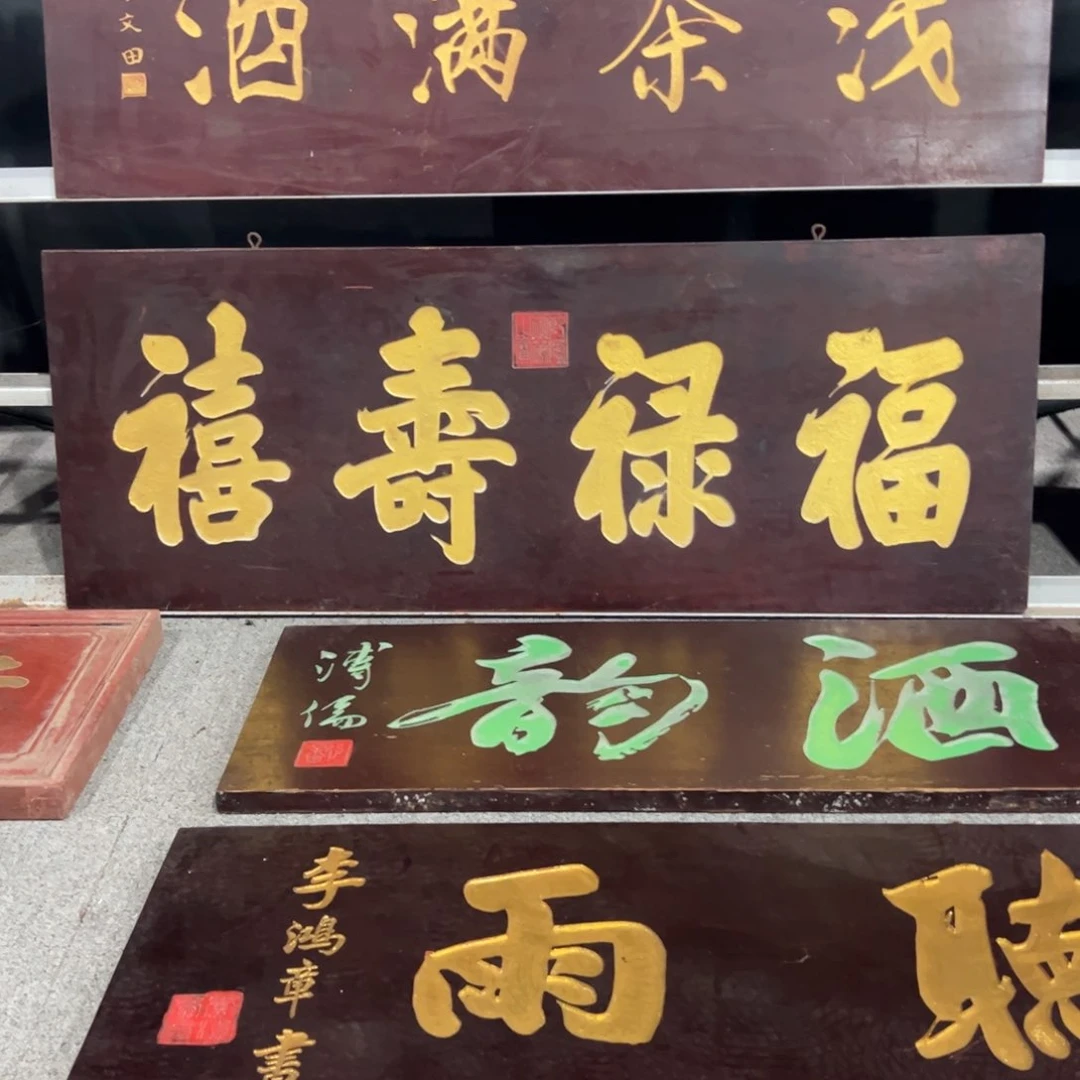 浅茶满酒
文田
福禄壽禧
酒韵
溥儒
聽雨
李鴻章書